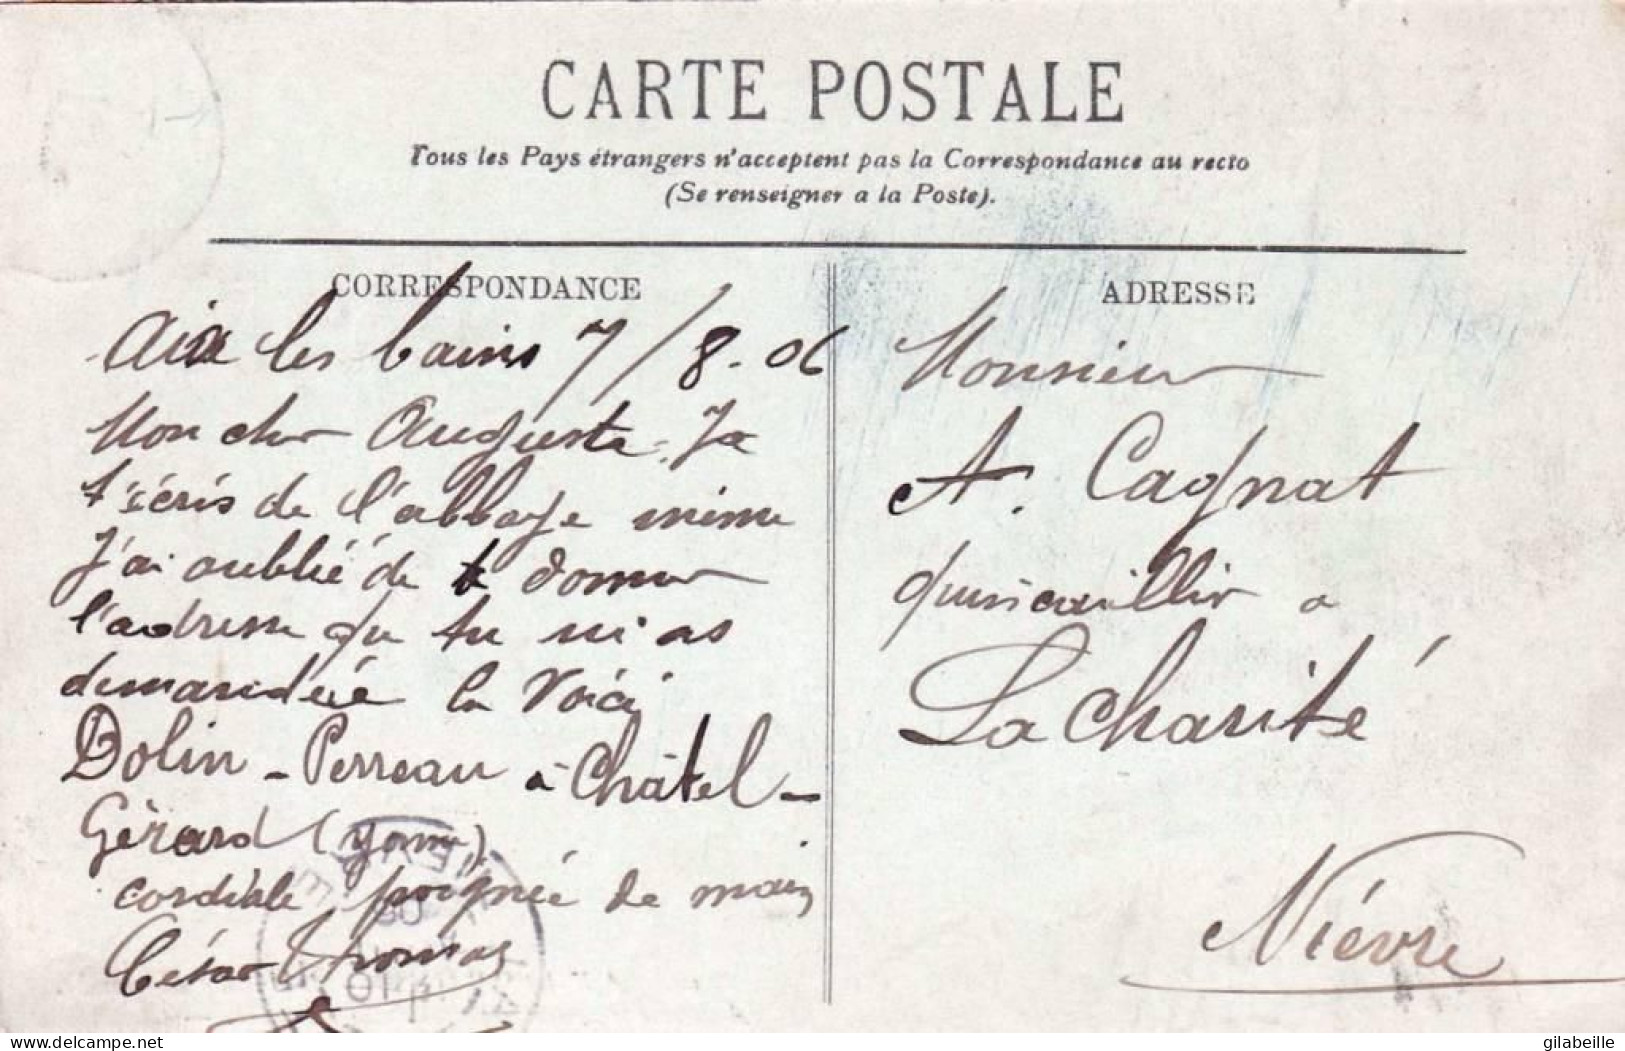 CARTE POSTALE
Tous les Pays étrangers n'acceptent pas la Correspondance au recto
(Se renseigner a la Poste).
CORRESPONDANCE
Aix les bains 7/8.06
Mon cher Auguste. Je
t'écris de l'abbaye même
J'ai oublié de te donner
l'adresse que tu m'as
demandée la voici
Dolin-Perreau à Châtel-
Gérard (Yonne)
cordiale poignée de main
César Thomas
ADRESSE
Monsieur
A. Cagnat
quincaillier a
La Charité
Nièvre
delcampe.net
gilabeille